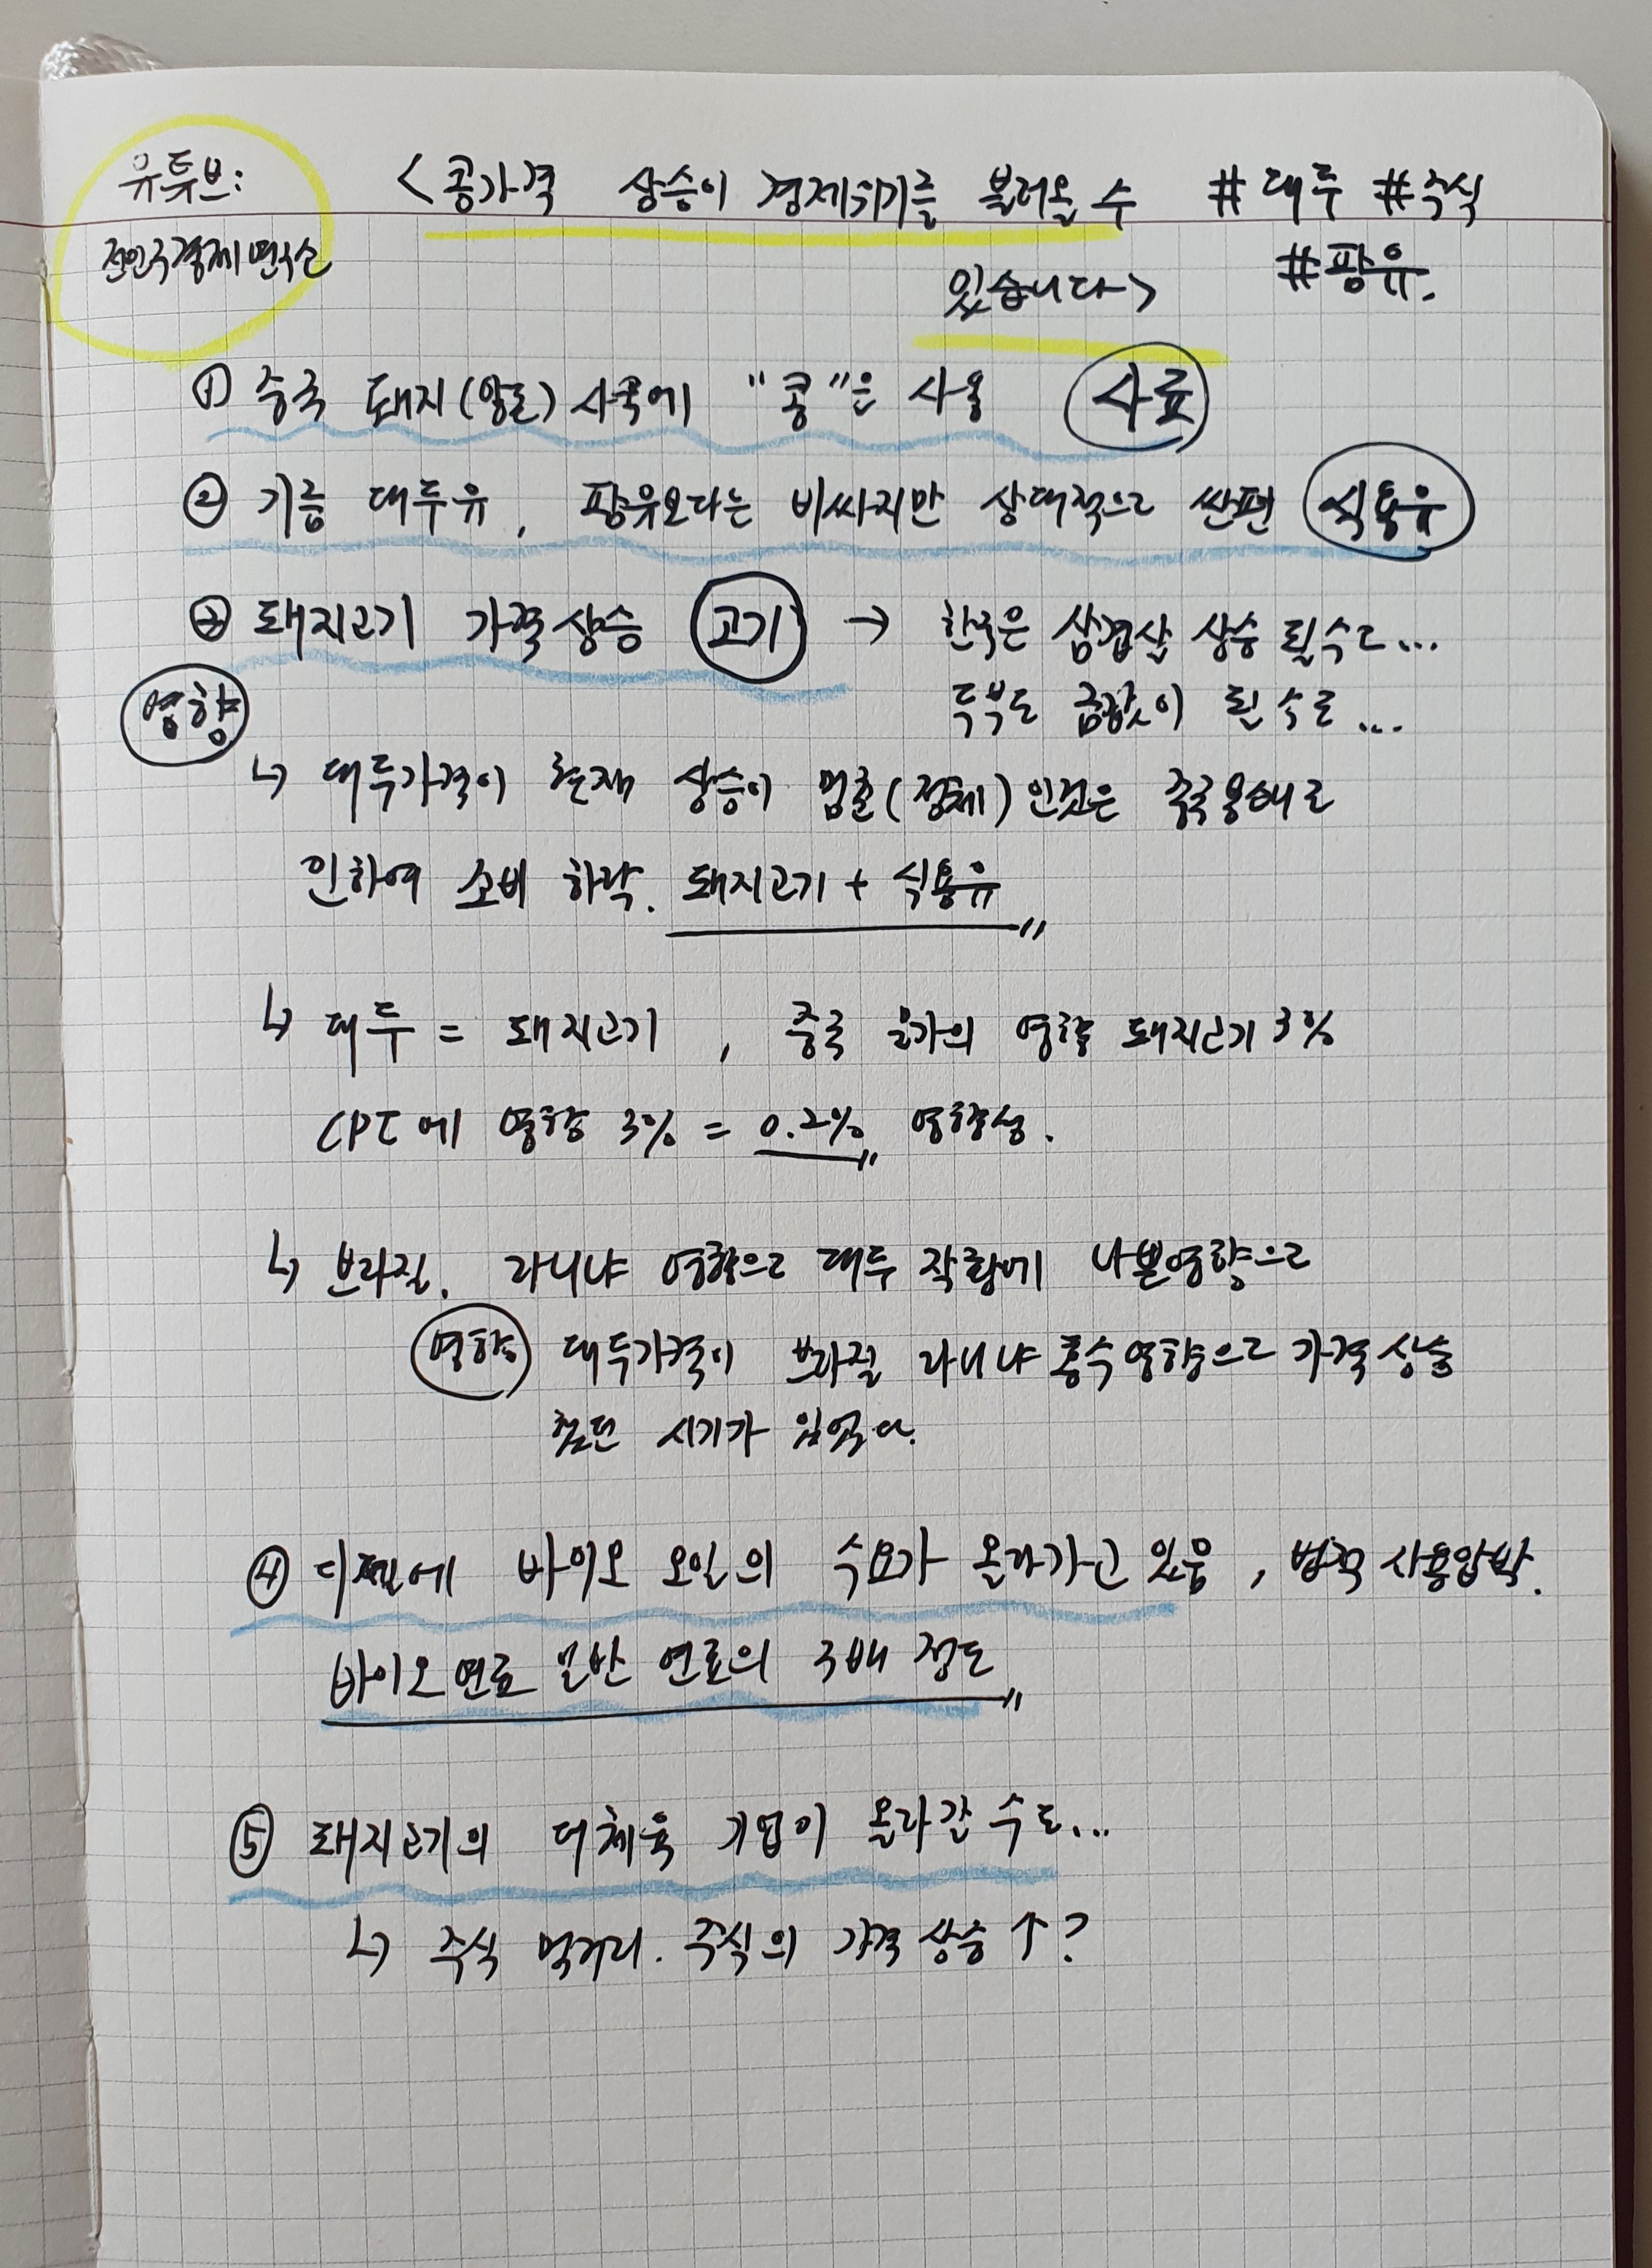 유튜브: <콩가격 상승이 경제위기를 불러올 수 #대두 #주식
전인구경제연구소 있습니다> #팜유.
① 중국 돼지(양돈) 사육에 "콩"을 사용 사료
② 기름 대두유, 팜유보다는 비싸지만 상대적으로 싼편 식용유
③ 돼지고기 가격상승 고기 → 한국은 삼겹살 상승 될수도...
영향 두부도 금값이 될 수도...
↳ 대두가격이 현재 상승이 멈춤(정체)인것은 중국봉쇄로
인하여 소비 하락. 돼지고기 + 식용유
↳ 대두 = 돼지고기, 중국 물가의 영향 돼지고기 3%
CPI에 영향 3% = 0.2% 영향성.
↳ 브라질. 라니냐 영향으로 대두 작황에 나쁜영향으로
영향 대두가격이 브라질 라니냐 홍수영향으로 가격상승
했던 시기가 있었다.
④ 디젤에 바이오 오일의 수요가 올라가고 있음, 법적 사용압박.
바이오연료 일반 연료의 3배 정도
⑤ 돼지고기의 대체육 기업이 올라갈 수도...
↳ 주식 먹거리. 주식의 가격상승↑?